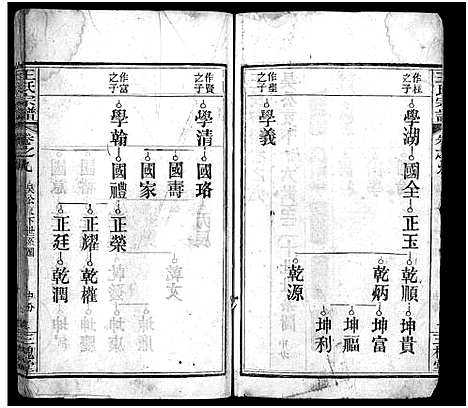 作柱之子
學湖
國全
正玉
乾順
乾炳
乾源
坤貴
坤富
坤福
坤利
學義
作賢之子
學清
國珞
作富之子
學翰
國壽
國家
國禮
正榮
正耀
正廷
乾權
乾潤
王氏宗譜
卷之九
三槐堂